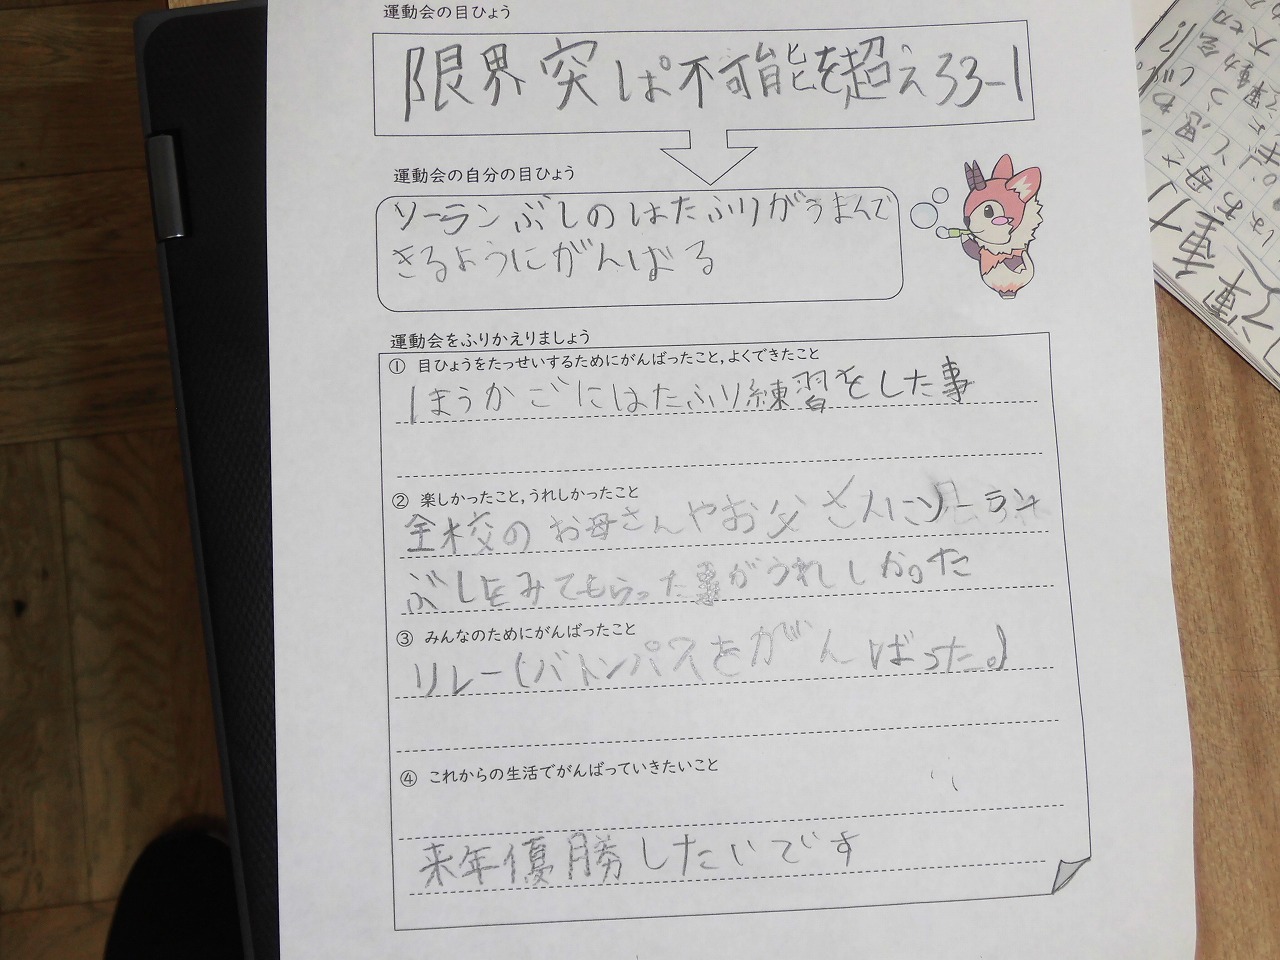 運動会の目ひょう
限界突ぱ不可能を超えろ3-1
運動会の自分の目ひょう
ソーランぶしのはたふりがうまんで
きるようにがんばる
運動会をふりかえりましょう
① 目ひょうをたっせいするためにがんばったこと,よくできたこと
ほうかごにはたふり練習をした事
② 楽しかったこと,うれしかったこと
全校のお母さんやお父さんにソーラン
ぶしをみてもらった事がうれしかった
③ みんなのためにがんばったこと
リレー(バトンパスをがんばった。)
④ これからの生活でがんばっていきたいこと
来年優勝したいです